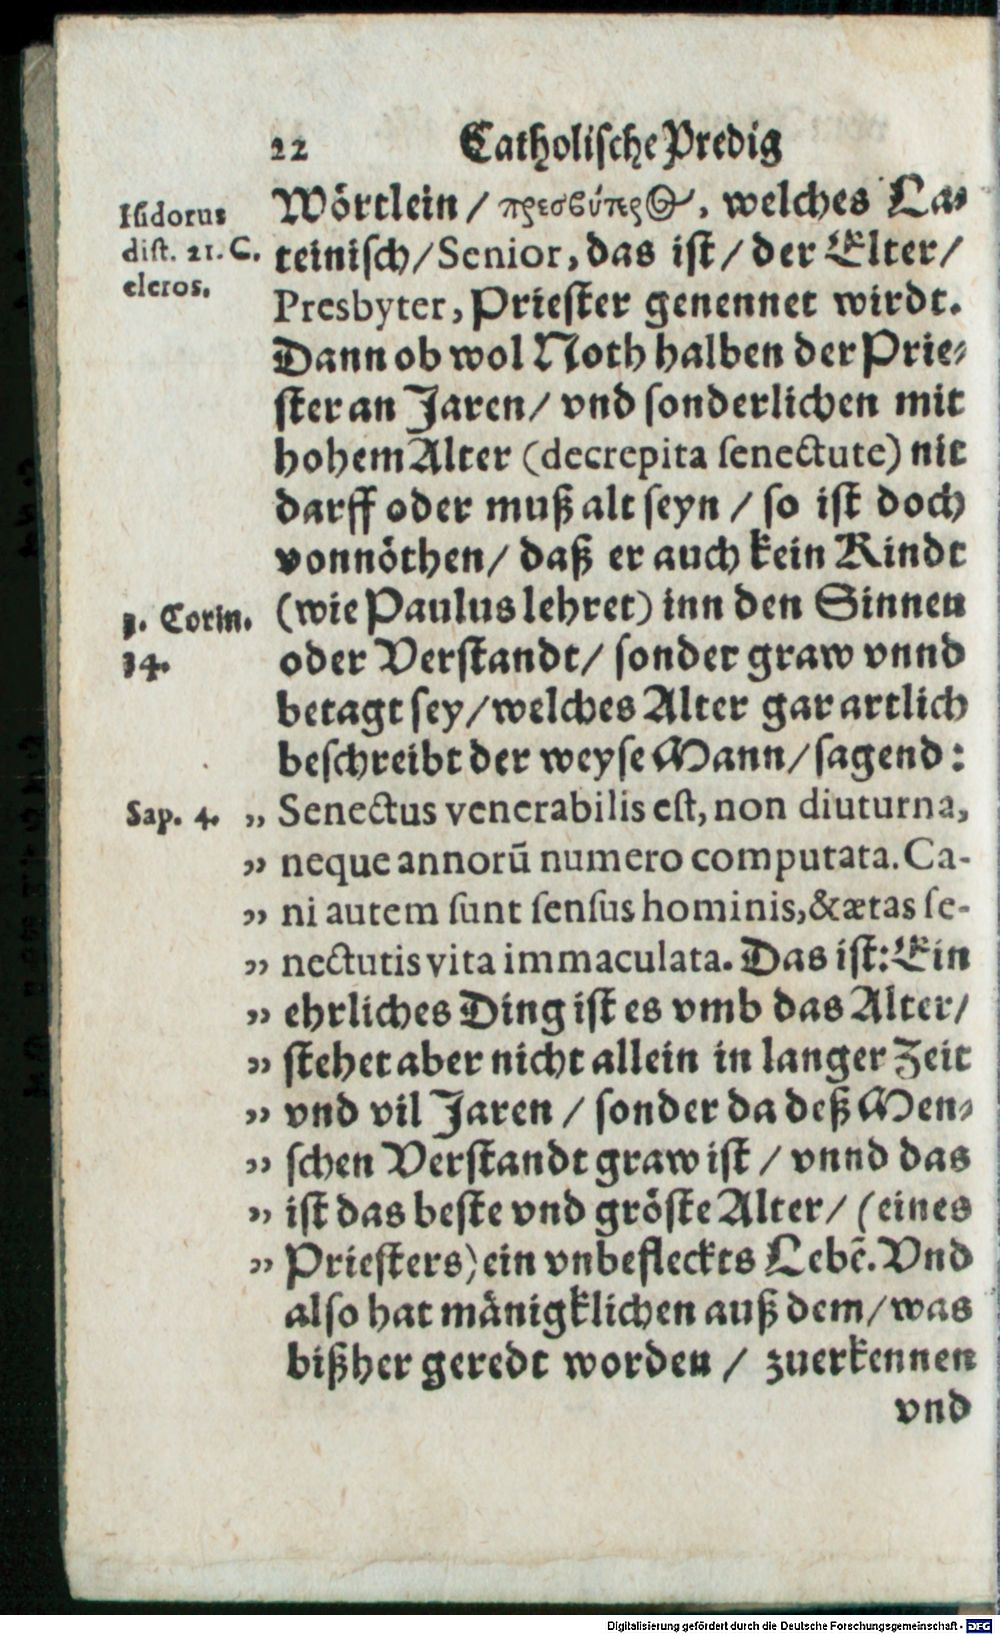 22 Catholische Predig
Isidorus
dist. 21. C.
cleros.
Wörtlein / πρεσβύτερος, welches La⸗
teinisch / Senior, das ist / der Elter /
Presbyter, Priester genennet wirdt.
Dann ob wol Noth halben der Prie⸗
ster an Jaren / vnd sonderlichen mit
hohem Alter (decrepita senectute) nit
darff oder muß alt seyn / so ist doch
vonnöthen / daß er auch kein Kindt
1. Corin.
14.
(wie Paulus lehret) inn den Sinnen
oder Verstandt / sonder graw vnnd
betagt sey / welches Alter gar artlich
beschreibt der weyse Mann / sagend:
Sap. 4. „ Senectus venerabilis est, non diuturna,
„ neque annorū numero computata. Ca-
„ ni autem sunt sensus hominis, & ætas se-
„ nectutis vita immaculata. Das ist: Ein
„ ehrliches Ding ist es vmb das Alter /
„ stehet aber nicht allein in langer Zeit
„ vnd vil Jaren / sonder da deß Men⸗
„ schen Verstandt graw ist / vnnd das
„ ist das beste vnd gröste Alter / (eines
„ Priesters) ein vnbeflecktes Lebē. Vnd
also hat mänigklichen auß dem / was
bißher geredt worden / zuerkennen
vnd
Digitalisierung gefördert durch die Deutsche Forschungsgemeinschaft - DFG